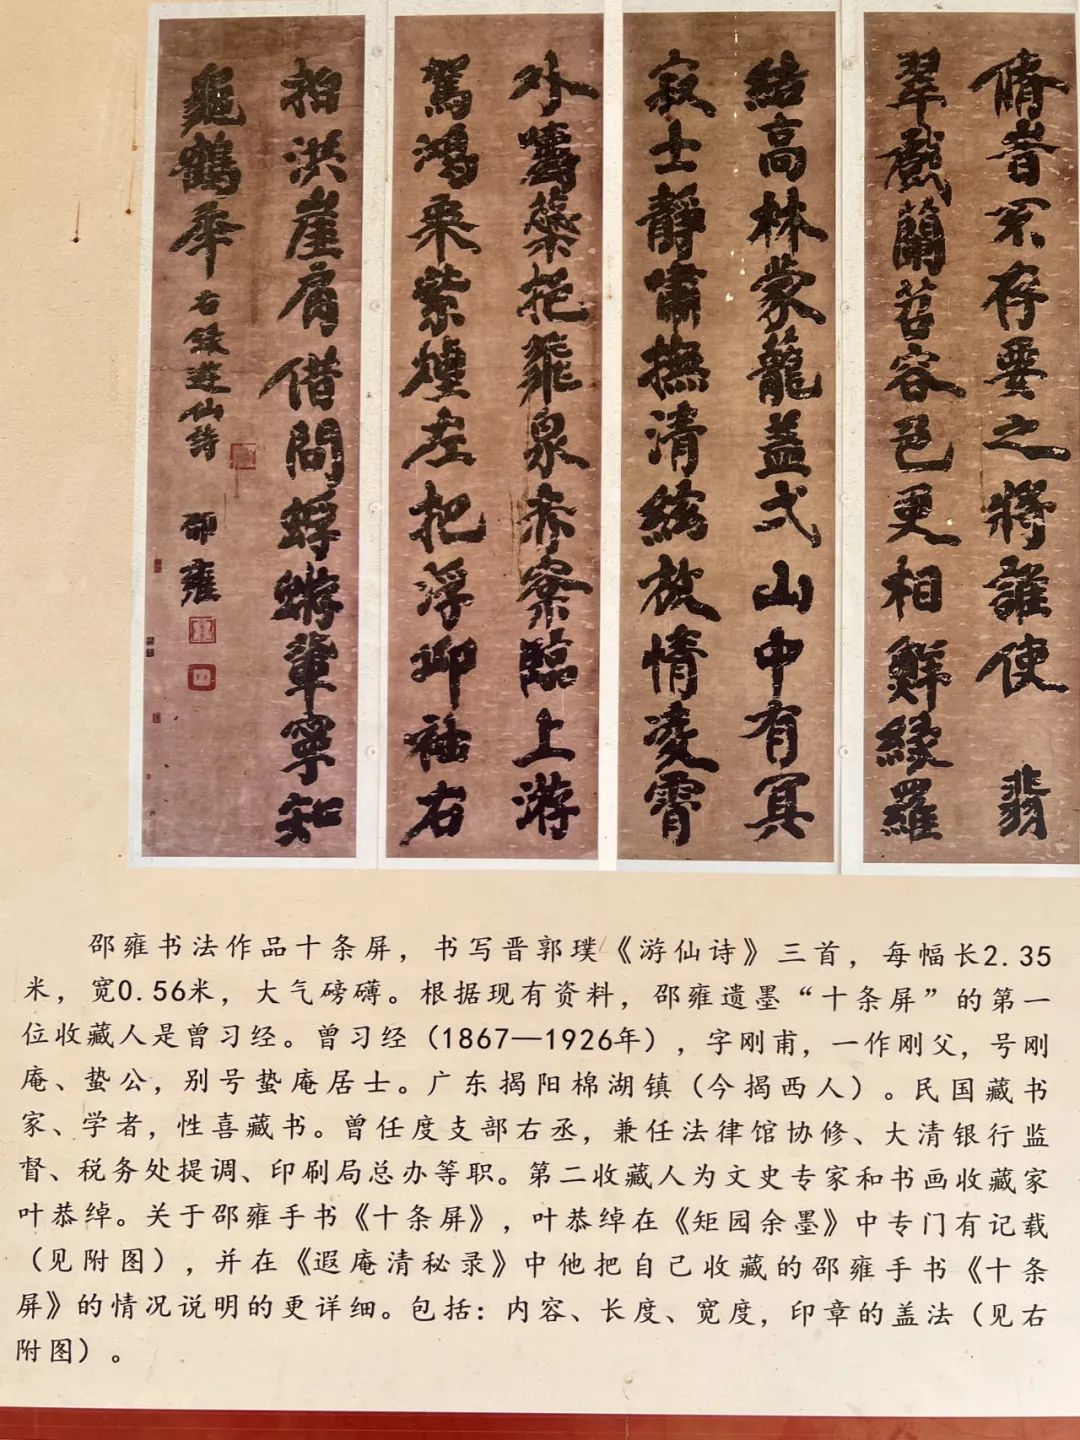 脩旹不存要之將誰使 翡
翠戲蘭苕容色更相鮮綠羅
結高林蒙籠盖弌山中有冥
寂士靜嘯撫清絃放情凌霄
外嚼蘂挹飛泉赤㮤臨上游
駕鴻乘紫煙左把浮邱袖右
拍洪崖肩借問蜉蝣輩寧知
龜鶴年 右錄遊仙詩 邵雍
邵雍书法作品十条屏，书写晋郭璞《游仙诗》三首，每幅长2.35
米，宽0.56米，大气磅礴。根据现有资料，邵雍遗墨“十条屏”的第一
位收藏人是曾习经。曾习经（1867—1926年），字刚甫，一作刚父，号刚
庵、蛰公，别号蛰庵居士。广东揭阳棉湖镇（今揭西人）。民国藏书
家、学者，性喜藏书。曾任度支部右丞，兼任法律馆协修、大清银行监
督、税务处提调、印刷局总办等职。第二收藏人为文史专家和书画收藏家
叶恭绰。关于邵雍手书《十条屏》，叶恭绰在《矩园余墨》中专门有记载
（见附图），并在《遐庵清秘录》中他把自己收藏的邵雍手书《十条
屏》的情况说明的更详细。包括：内容、长度、宽度，印章的盖法（见右
附图）。